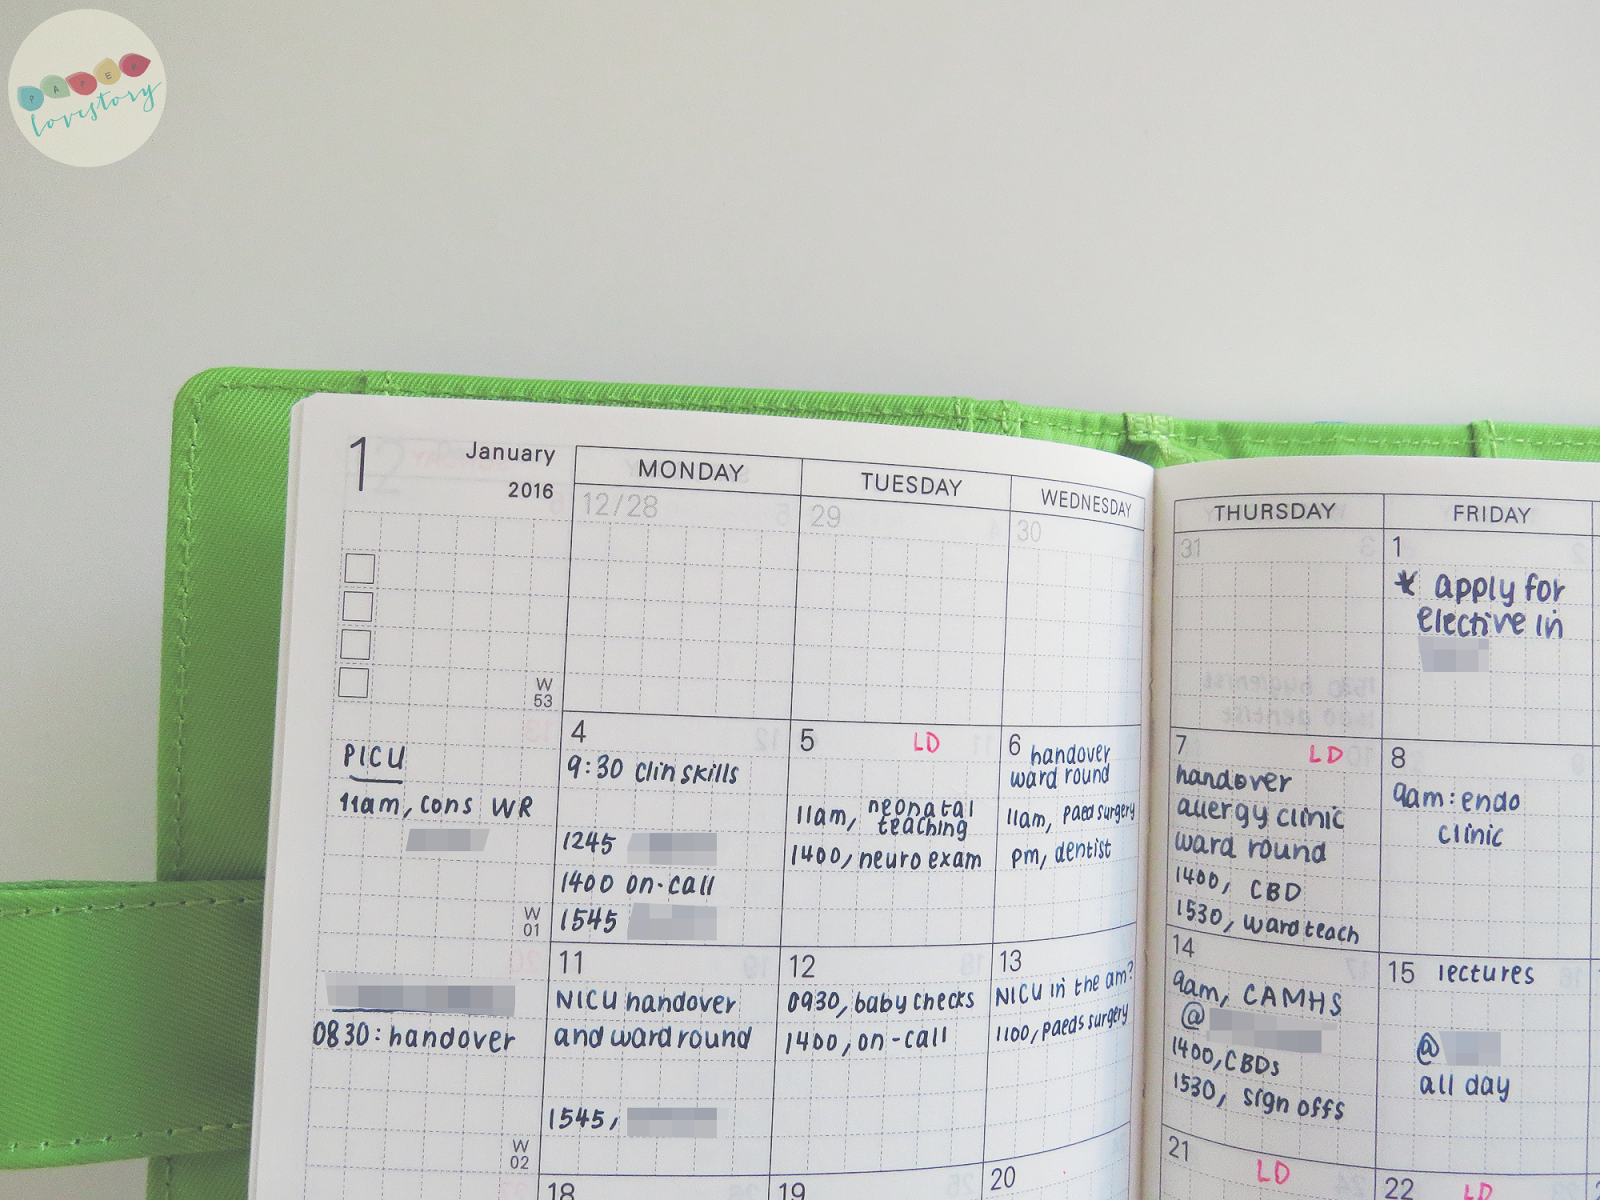 PAPER
lovestory
1 January
2016
MONDAY
TUESDAY
WEDNESDAY
THURSDAY
FRIDAY
12/28
29
30
31
1
* apply for
elective in
W
53
PICU
11am, cons WR
W
01
4
9:30 clin skills
1245
1400 on-call
1545
5 LD
11am, neonatal
teaching
1400, neuro exam
6 handover
ward round
11am, paed surgery
pm, dentist
7 LD
handover
allergy clinic
ward round
1400, CBD
1530, ward teach
8
9am: endo
clinic
0830: handover
W
02
11
NICU handover
and ward round
1545,
12
0930, baby checks
1400, on-call
13
NICU in the am?
1100, paeds surgery
14
9am, CAMHS
@
1400, CBDs
1530, sign offs
15 lectures
@
all day
18
19
20
21 LD
22 LD